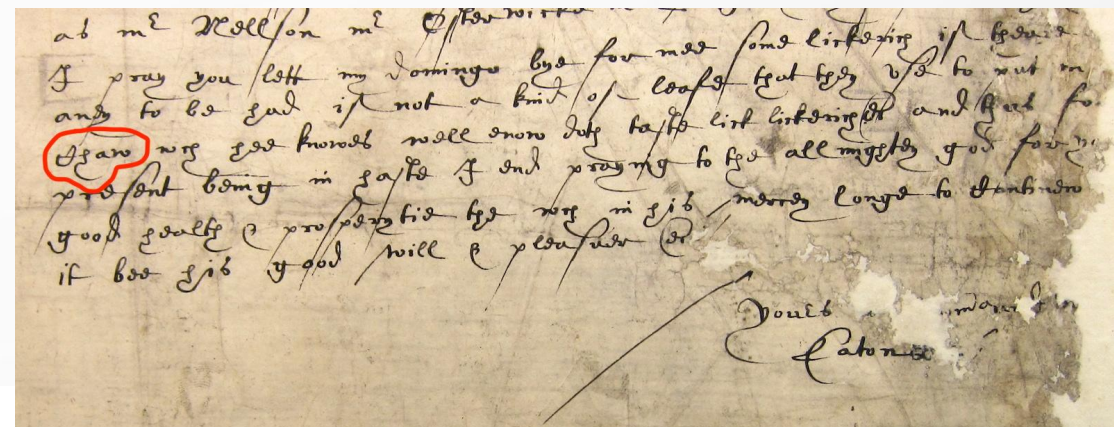 as mr Nellson mr Osterwicke
I pray you lett my domingo bye for mee some lickerich if theare
aney to be had if not a kind of leafe that they use to put in
Chaw wch hee knowes well enow doth taste lick lickerich &c and thus fo
present being in haste I end praying to the allmightey god for
good health & prosperytie the wch in his mercey longe to Continew
it bee his good will & pleasuer &c
Yours
Eaton